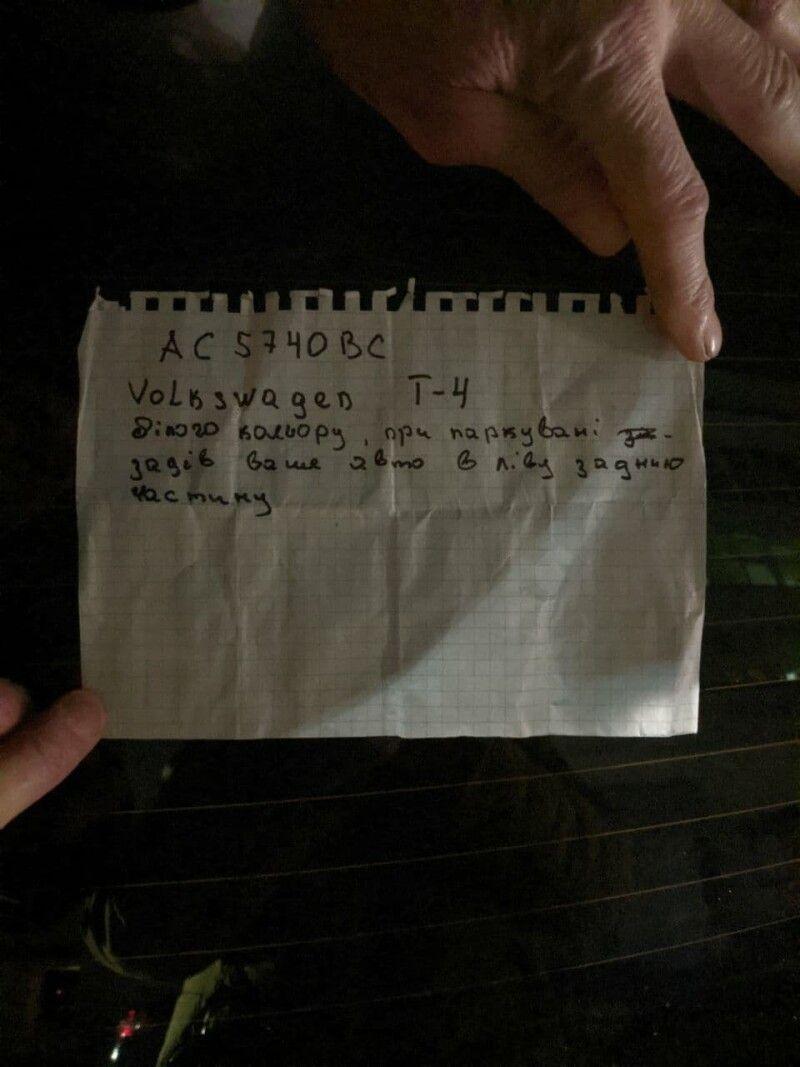 АС 5740ВС
Volkswagen T-4
білого кольору, при паркувані
задів ваше авто в ліву заднню
частину